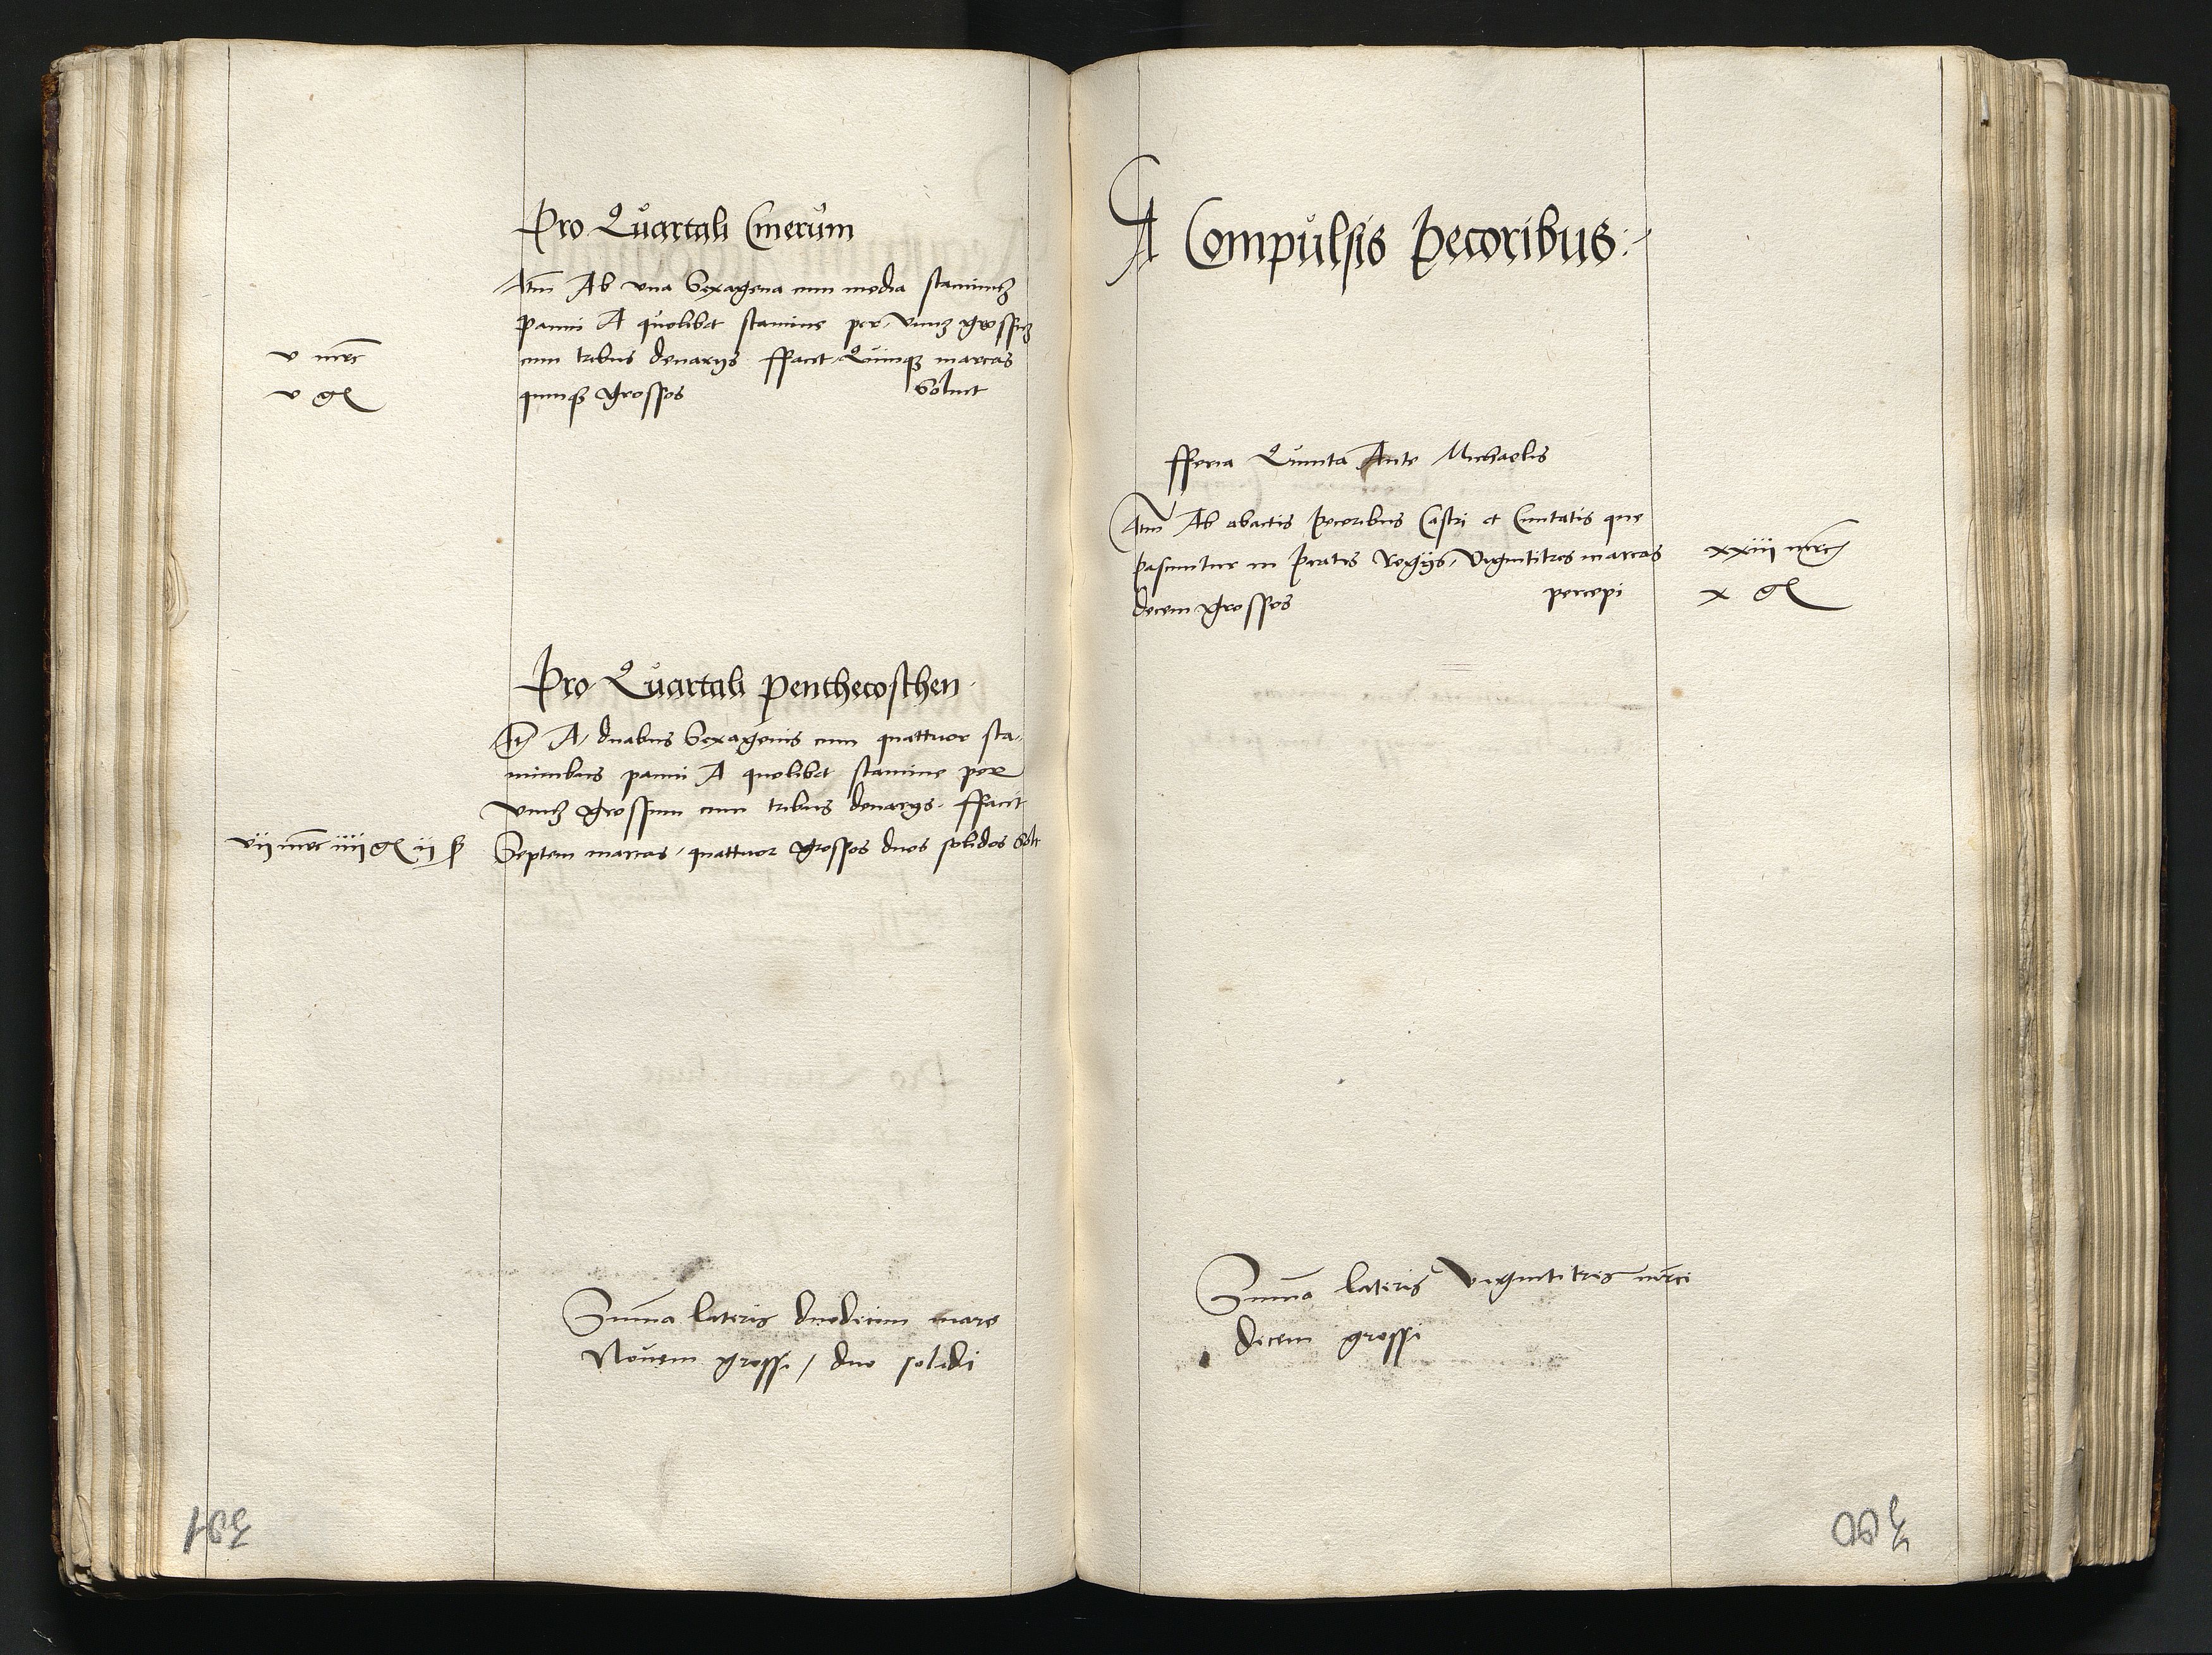 Pro Quartali Cinerum
Itm Ab vna Sexagena cum media staminũ
panni A quolibet stamine per vnũ grossũ
v mrc cum tribus denarijs ffacit Quinq marcas
v gͦ quinq grossos Soluit
Pro Quartali Penthecosthen
It A duabus Sexagenis cum quattuor sta-
minibus panni A quolibet stamine per
vnũ grossum cum tribus denarijs ffacit
vij mrc iiij gͦ ij ß Septem marcas quattuor grossos duos solidos Solt
Sum̃a lateris duodecim marc
Nouem grossi / duo solidi
391
A Compulsis Pecoribus
fferia Quinta Ante Michaelis
Itm Ab abactis Pecoribus Castri et Ciuitatis que
Pascuntur in Pratis Regijs, Vigintitres marcas xxiii mrc
decem grossos percepi x gͦ
Sum̃a lateris Vigintitres mrci
decem grossi
390